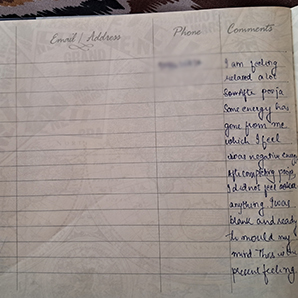 Email / Address Phone Comments
I am feeling
relaxed a lot
Some energy has
gone from me
which I feel
was negative energy
After completing pooja
I did not feel
anything. I was
blank and ready
to mould my
mind. This is the
present feeling